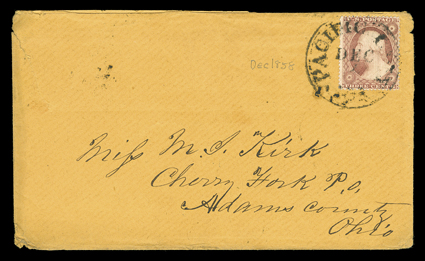 PACIFIC
DEC
Dec 1858
THREE CENTS
Miss M. J. Kirk
Cherry Fork P.o.
Adams county
Ohio